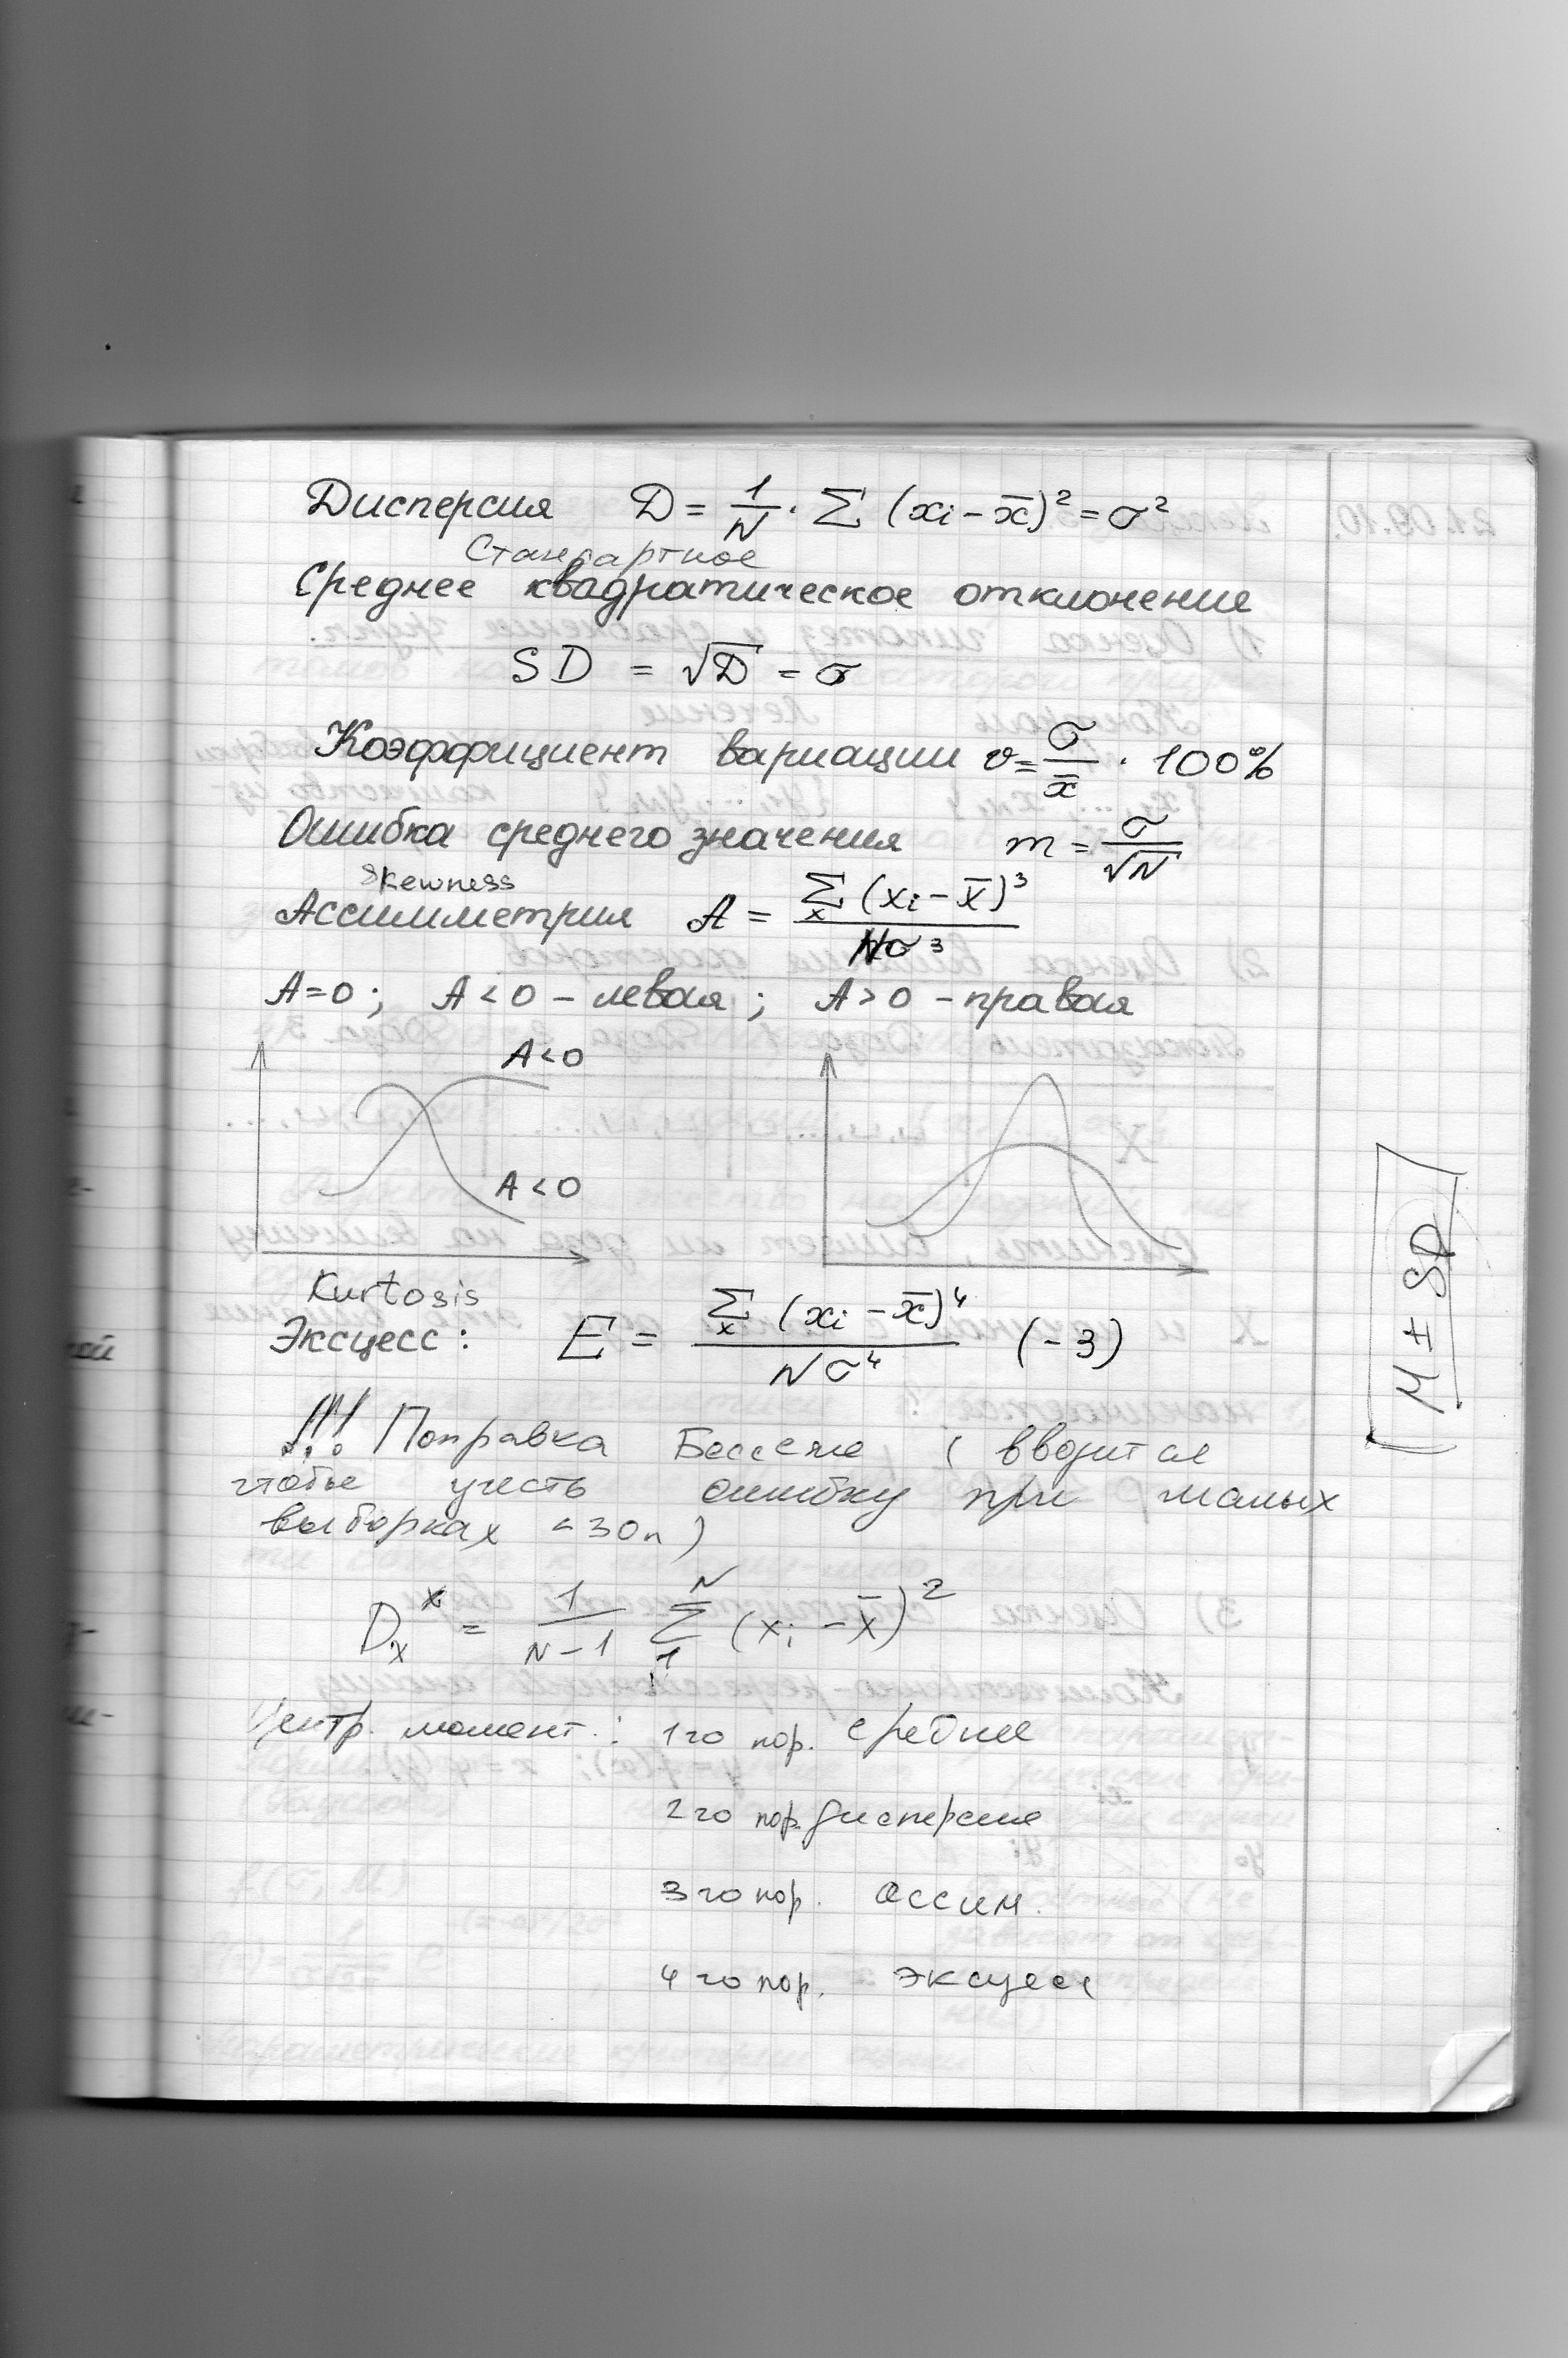 Дисперсия D = 1/N · Σ (xi – x̄)² = σ²
Стандартное
Среднее квадратическое отклонение
SD = √D = σ
Коэффициент вариации v = σ/x̄ · 100%
Ошибка среднего значения m = σ/√N
Skewness
Ассиметрия A = Σx (xi – x̄)³ / Nσ³
A=0; A<0 – левая; A>0 – правая
A<0
A<0
Kurtosis
Эксцесс: E = Σx (xi – x̄)⁴ / Nσ⁴ (-3)
!!! Поправка Бесселя (вводится
чтобы учесть ошибку при малых
выборках <30n)
Dx* = 1/(N-1) Σ₁ᴺ (xi – x̄)²
Центр. момент.: 1го пор. среднее
2го пор. дисперсия
3го пор. ассим.
4го пор. эксцесс
M ± SD